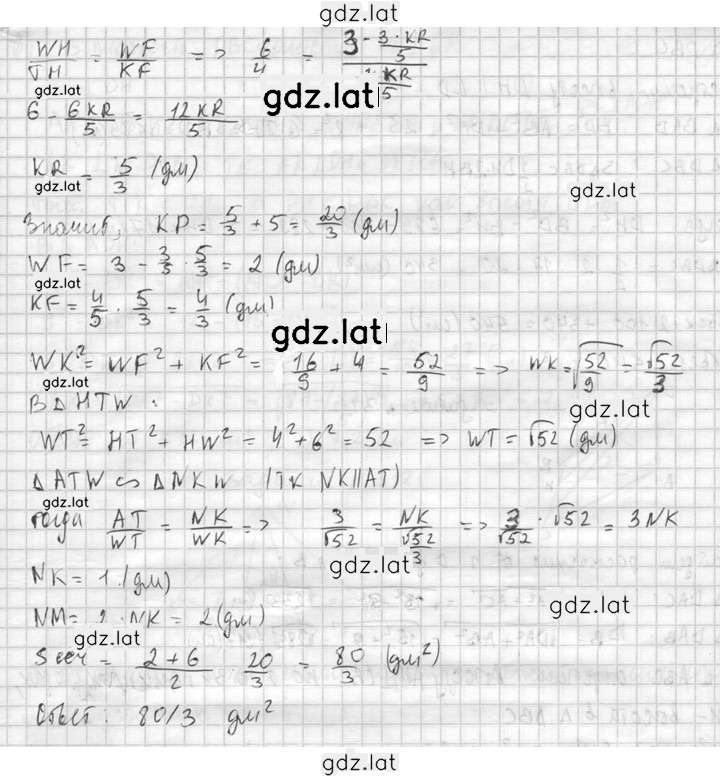 gdz.lat
WH/TH = WF/KF => 6/4 = (3 - 3·KR/5)/(4·KR/5)
gdz.lat
gdz.lat
6 - 6KR/5 = 12KR/5
KR = 5/3 (дм)
gdz.lat
gdz.lat
Значит, KP = 5/3 + 5 = 20/3 (дм)
WF = 3 - 3/5 · 5/3 = 2 (дм)
KF = 4/5 · 5/3 = 4/3 (дм)
gdz.lat
WK² = WF² + KF² = 16/9 + 4 = 52/9 => WK = √52/9 = √52/3
gdz.lat
В Δ HTW:
gdz.lat
WT² = HT² + HW² = 4² + 6² = 52 => WT = √52 (дм)
Δ ATW ∽ Δ NKW (тк NK||AT)
gdz.lat
тогда AT/WT = NK/WK => 3/√52 = NK/(√52/3) => 3/√52 · √52 = 3NK
gdz.lat
NK = 1 (дм)
gdz.lat
NM = 2 · NK = 2 (дм)
gdz.lat
S сеч = (2+6)/2 · 20/3 = 80/3 (дм²)
Ответ: 80/3 дм²
gdz.lat